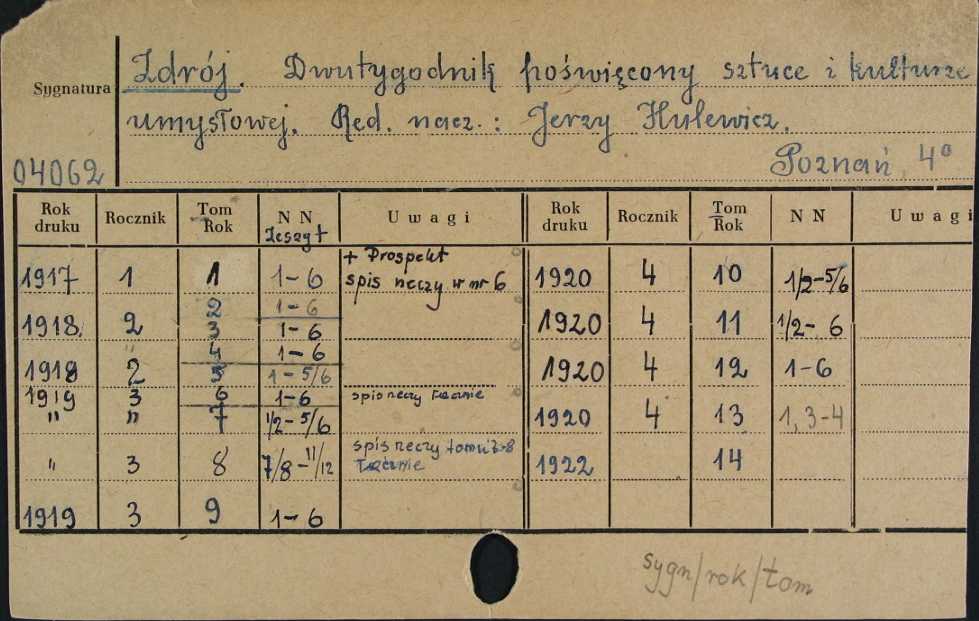 Zdrój. Dwutygodnik poświęcony sztuce i kulturze
Sygnatura
umysłowej. Red. nacz.: Jerzy Hulewicz.
04062 Poznań 4°
Rok druku Rocznik Tom Rok N N Zeszyt Uwagi Rok druku Rocznik Tom Rok N N Uwagi
+ Prospekt
1917 1 1 1-6 spis rzeczy w nr 6 1920 4 10 1/2-5/6
2 1-6
1918 2 3 1-6 1920 4 11 1/2-6
" 4 1-6
1918 2 5 1-5/6 1920 4 12 1-6
1919 3 6 1-6 spis rzeczy łącznie
" " 7 1/2-5/6 1920 4 13 1, 3-4
spis rzeczy tomu 7-8
" 3 8 7/8-11/12 łącznie 1922 14
1919 3 9 1-6
sygn/rok/tom